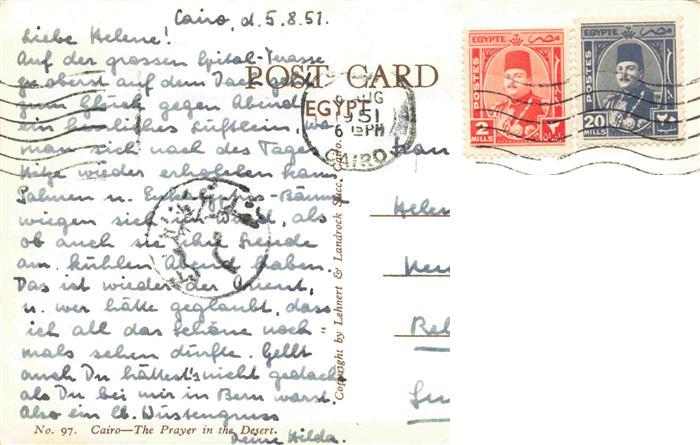 Cairo, d. 5.8.51.
Liebe Helene!
Auf der grossen Spital-Terrasse
zu oberst auf dem Dach
zum Glück gegen Abend
ein herrliches Lüftlein, wo
man sich nach des Tages
Hitze wieder erholen kann.
Palmen u. Eukalyptus-Bäume
wiegen sich im Wind, als
ob auch sie ihre Freude
am kühlen Abend haben.
Das ist wieder der Orient,
u. wer hätte geglaubt, dass
ich all das Schöne noch-
mals sehen dürfte. Gellt
auch Du hättest's nicht gedacht
als Du bei mir in Bern warst.
Also ein lb. Wüstengruss
Deine Hilda.
No. 97. Cairo—The Prayer in the Desert.
POST CARD
EGYPT
Copyright by Lehnert & Landrock Succ. Cairo.
1951
6 15PM
CAIRO
EGYPTE مصر
POSTES
2
MILLS
٢
EGYPTE مصر
POSTES
20
MILLS
٢٠
Helen